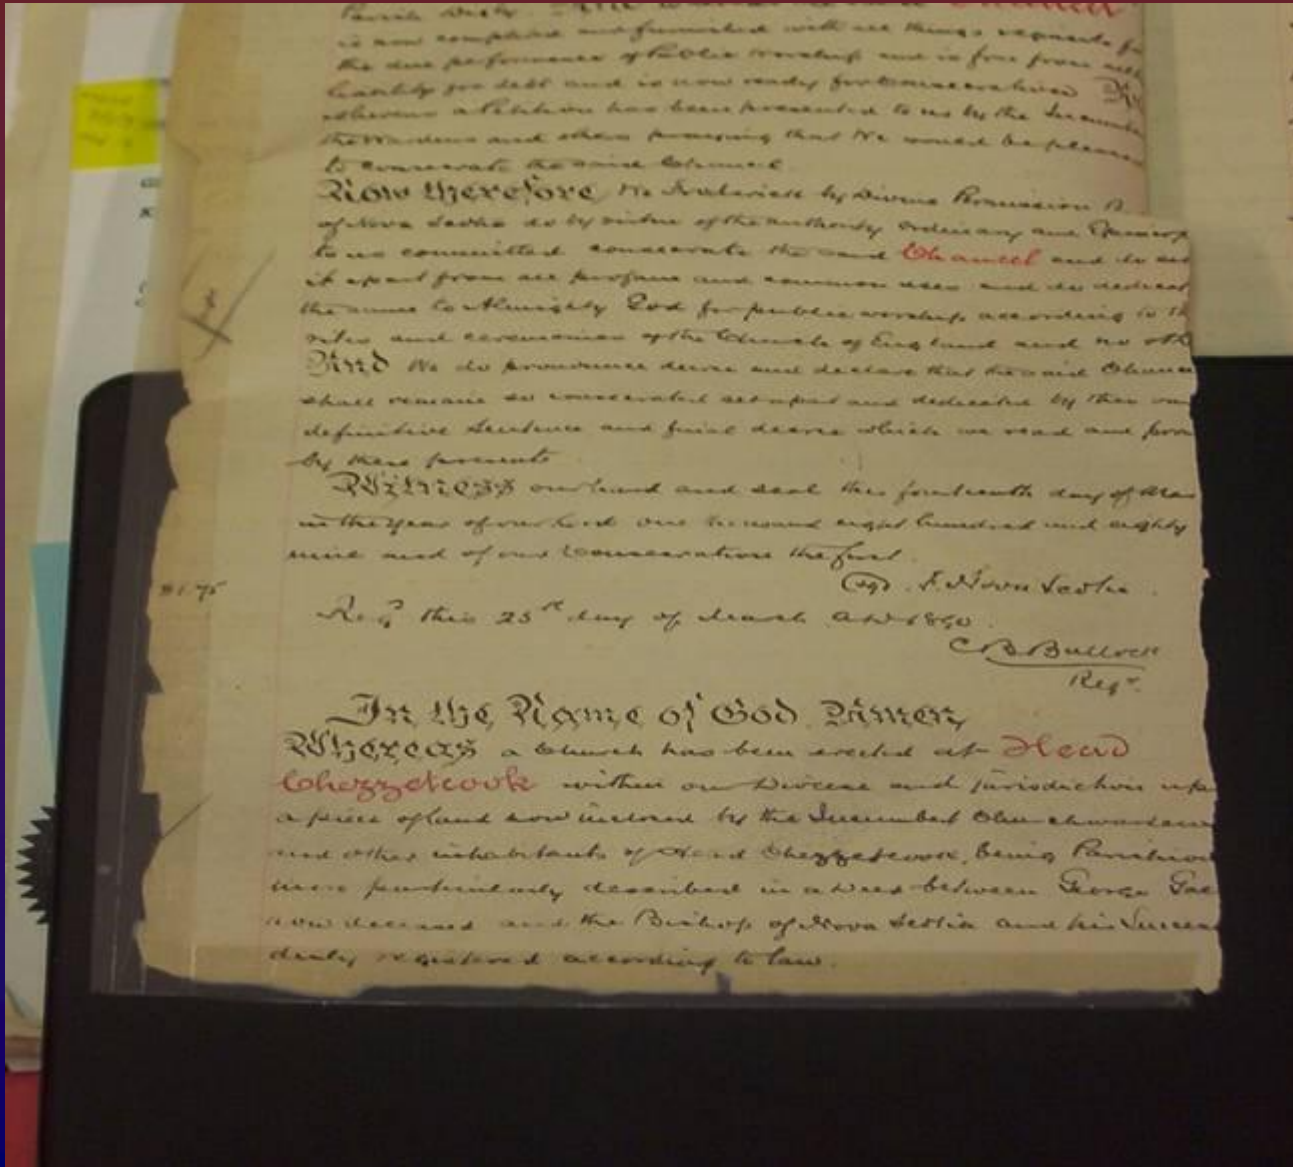 is now completed and furnished with all things requisite for
the due performance of Public Worship and is free from all
liability for debt and is now ready for Consecration And
whereas a Petition has been presented to us by the Incumbe
the Wardens and others praying that We would be please
to consecrate the said Chancel
Now therefore We Frederick by Divine Permission B
of Nova Scotia do by virtue of the authority ordinary and Episcop
to us committed consecrate the said Chancel and do set
it apart from all profane and common uses and do dedicat
the same to Almighty God for public worship according to th
rites and ceremonies of the Church of England and no oth
And We do pronounce decree and declare that the said Chance
shall remain so consecrated set apart and dedicated by this our
definitive Sentence and final decree which we read and prom
by these presents
Witness our hand and seal this fourteenth day of
in the year of our Lord one thousand eight hundred and eighty
nine and of our Consecration the first.
F. Nova Scotia.
$1.75
Regd this 25th day of March A.D. 1890.
C B Bullock
Regr.
In the Name of God Amen
Whereas a Church has been erected at Head
Chezzetcook within our Diocese and jurisdiction up
a piece of land now inclosed by the Incumbent Churchwarden
and other inhabitants of Head Chezzetcook, being Parishion
more particularly described in a Deed between George Gae
now deceased and the Bishop of Nova Scotia and his Succes
duly registered according to law.